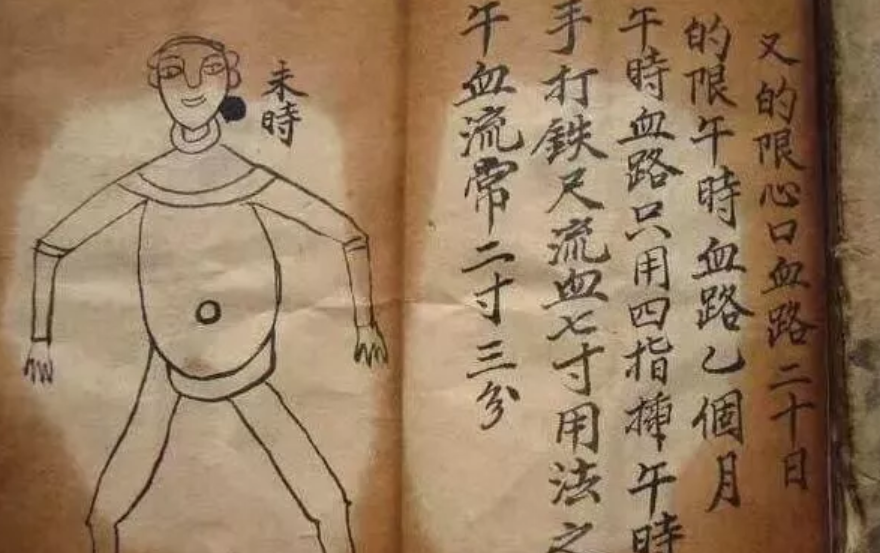 又的限心口血路二十日
的限午時血路乙個月
午時血路只用四指揷午時
手打鉄尺流血七寸用法之
午血流常二寸三分
未時